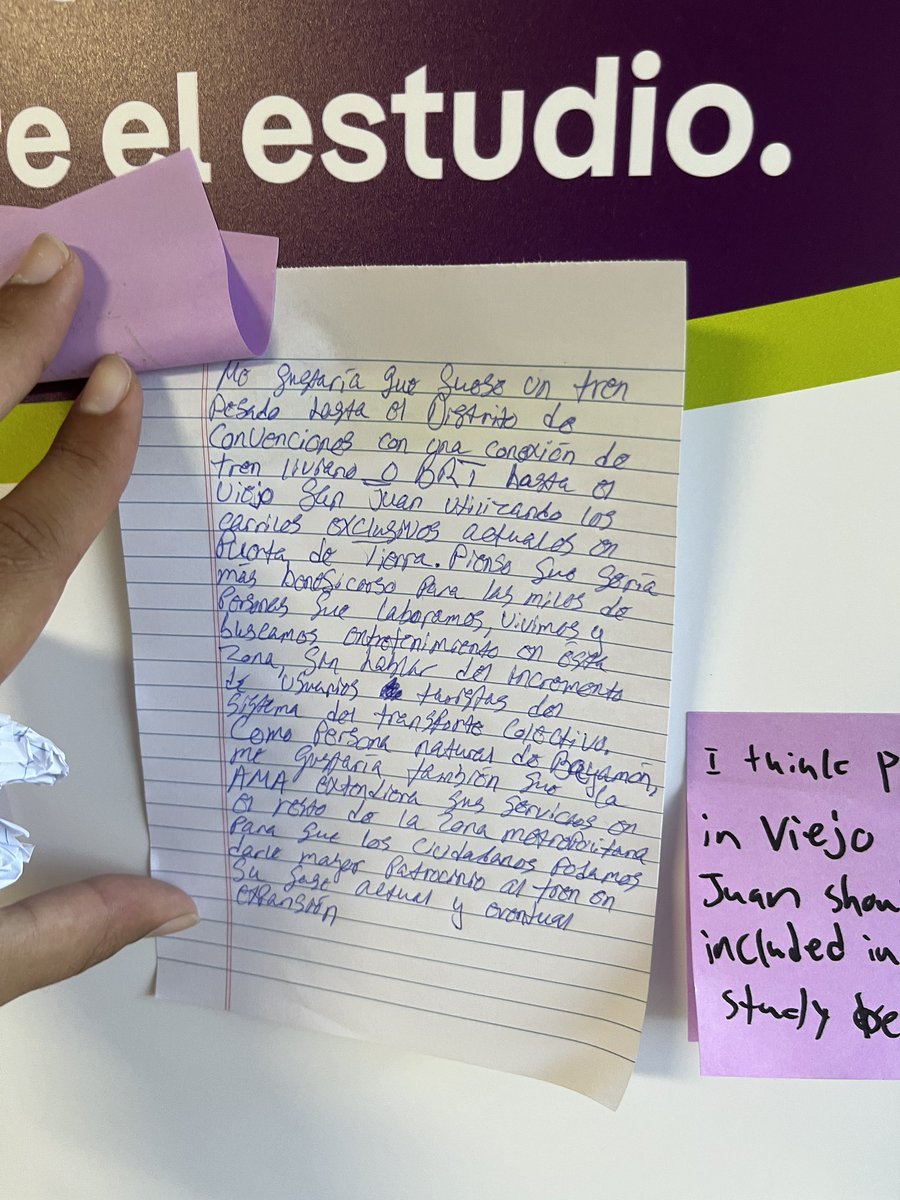 e el estudio.
Me gustaría que fuese un tren
pesado hasta el Distrito de
Convenciones con una conexión de
tren liviano o BRT hasta el
Viejo San Juan utilizando los
carriles exclusivos actuales en
Puerta de Tierra. Pienso que sería
más beneficioso para las miles de
personas que laboramos, vivimos y
buscamos entretenimiento en esta
zona, sin hablar del incremento
de usuarios turistas del
sistema del transporte colectivo.
Como persona natural de Bayamón,
me gustaría también que la
AMA extendiera sus servicios en
el resto de la zona metropolitana
para que los ciudadanos podamos
darle mayor patrocinio al tren en
su fase actual y eventual
expansión
I think p
in Viejo
Juan shou
included in
study be